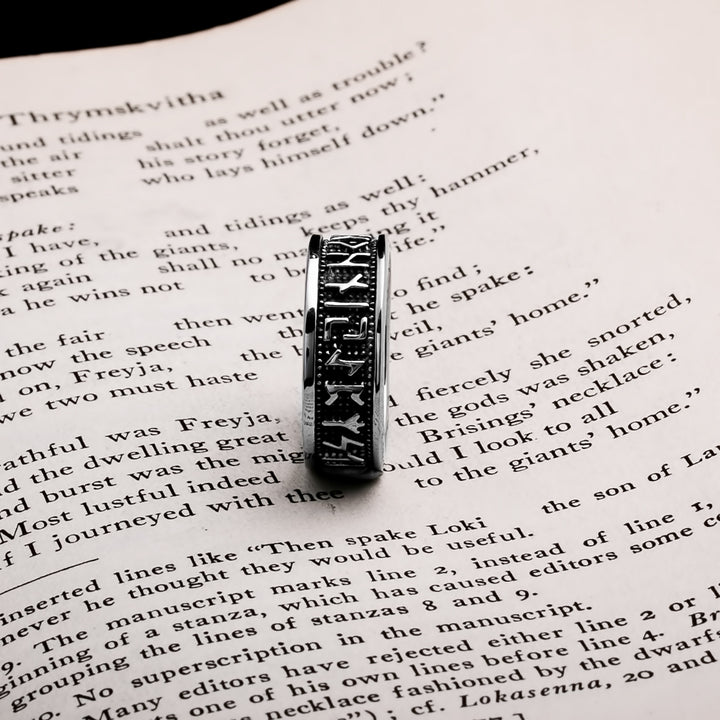 Thrymskvitha
tidings as well as trouble?
the air shalt thou utter now;
sitter his story forget,
speaks who lays himself down."
spake:
I have, and tidings as well:
of the giants, keeps thy hammer,
again shall no it
he wins not to life."
the fair then went find;
now the speech he spake:
on, Freyja, the
we two must haste giants' home."
was Freyja, fiercely she snorted,
the dwelling great the gods was shaken,
burst was the Brisings' necklace:
Most lustful indeed I look to all
If I journeyed with thee to the giants' home."
inserted lines like "Then spake Loki the son of
he thought they would be useful.
9. The manuscript marks line 2, instead of line 1,
of a stanza, which has caused editors some
grouping the lines of stanzas 8 and 9.
No superscription in the manuscript.
Many editors have rejected either line 2 or
one of his own lines before line 4.
necklace fashioned by the
cf. Lokasenna, 20 and
ᚺᚾᛁᛃᛇᛈᛉᛊ